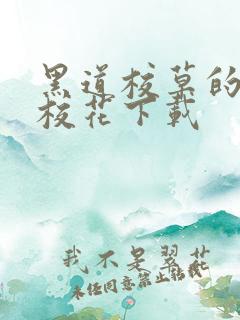 黑道校草的
校花下载
我不是翠花
未经同意禁止转载